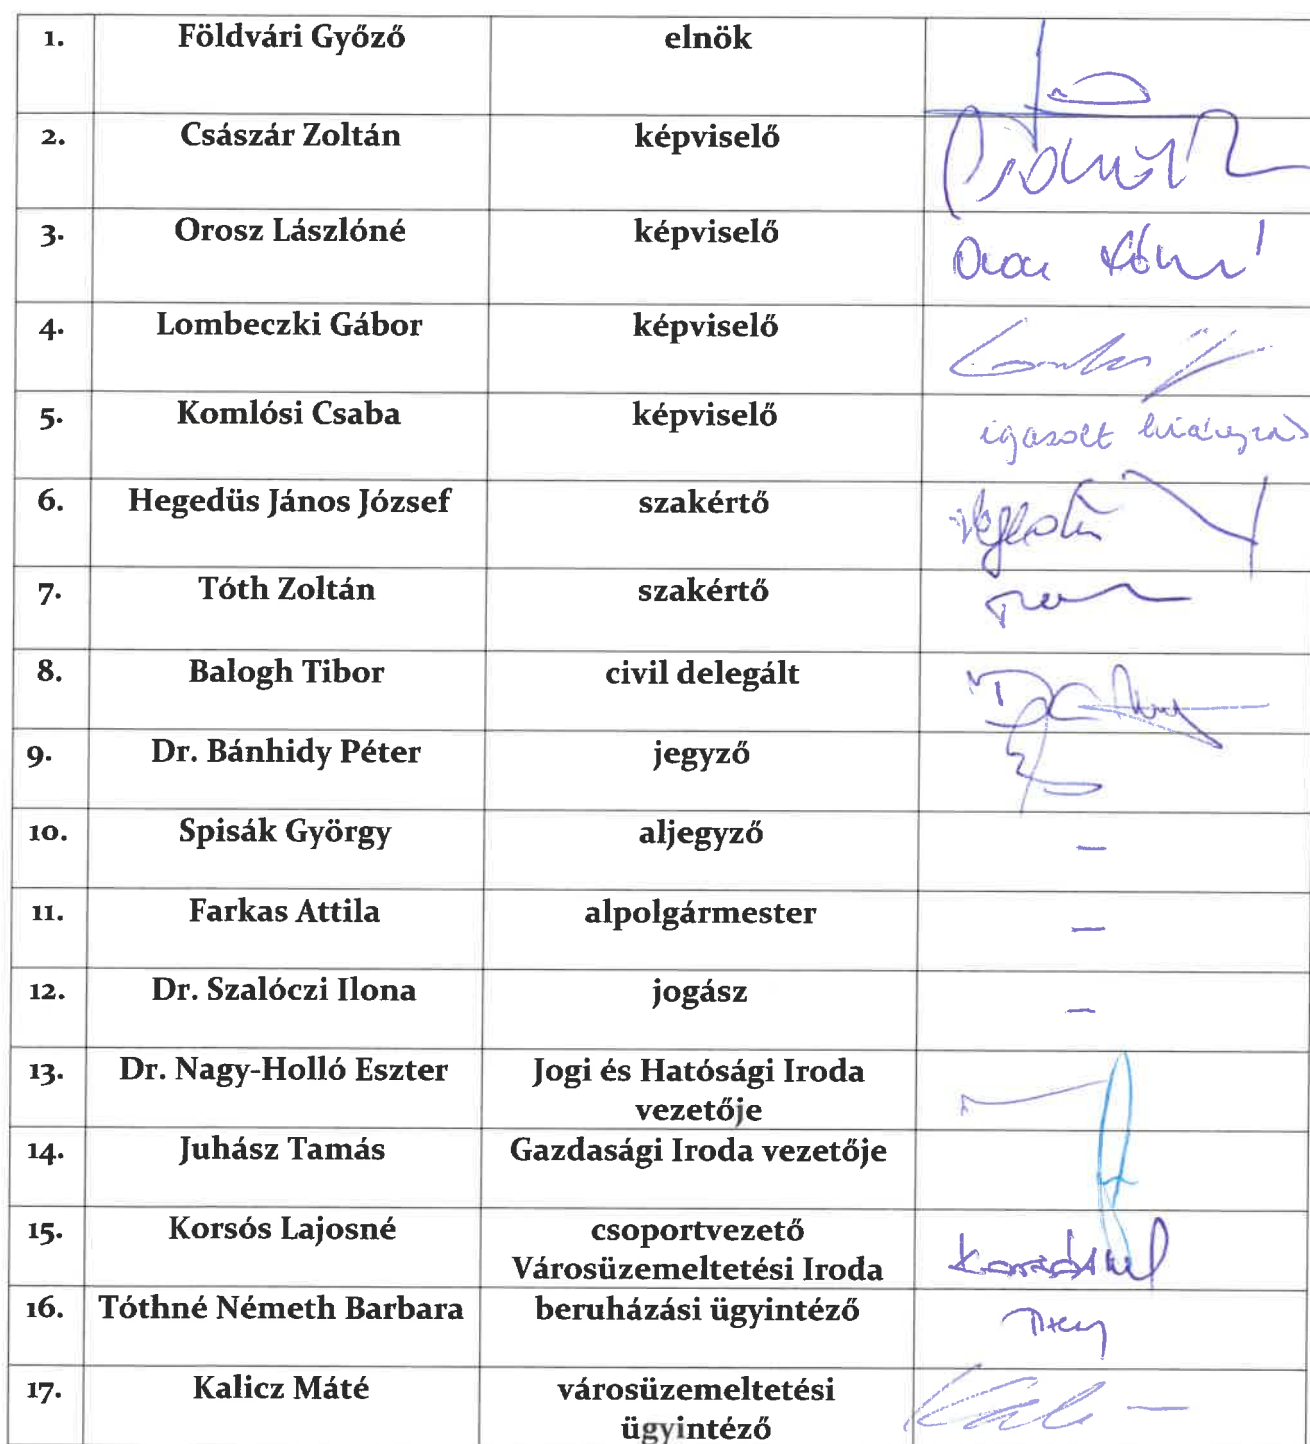 1. Földvári Győző elnök
2. Császár Zoltán képviselő
3. Orosz Lászlóné képviselő
4. Lombeczki Gábor képviselő
5. Komlósi Csaba képviselő igazolt hiányzás
6. Hegedüs János József szakértő
7. Tóth Zoltán szakértő
8. Balogh Tibor civil delegált
9. Dr. Bánhidy Péter jegyző
10. Spisák György aljegyző –
11. Farkas Attila alpolgármester –
12. Dr. Szalóczi Ilona jogász –
13. Dr. Nagy-Holló Eszter Jogi és Hatósági Iroda
vezetője
14. Juhász Tamás Gazdasági Iroda vezetője
15. Korsós Lajosné csoportvezető
Városüzemeltetési Iroda
16. Tóthné Németh Barbara beruházási ügyintéző
17. Kalicz Máté városüzemeltetési
ügyintéző